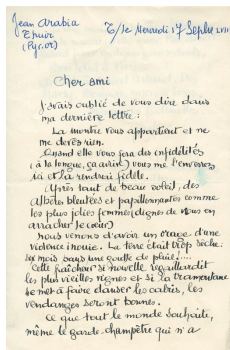 Jean Arabia
Thuir
(Pyr. or)
T/le Mercredi 17 Septbre
Cher ami
J'avais oublié de vous dire dans
ma dernière lettre :
La montre vous appartient et ne
me devez rien.
Quand elle vous fera des infidélités
(à la longue, ça arrive) vous me l'enverrez
ici et la rendrai fidèle.
Après tant de beau soleil, des
Albères bleutées et papillonnantes comme
les plus jolies femmes (dignes de nous en
arracher le cœur)
Nous venons d'avoir un orage d'une
violence inouïe. La terre était trop sèche.
mois sans une goutte de pluie!....
Cette fraîcheur si nouvelle regaillardit
les plus vieilles vignes et si la tramontane
se met à faire danser les cabris, les
vendanges seront bonnes.
Ce que tout le monde souhaite,
même le garde-champêtre qui n'a